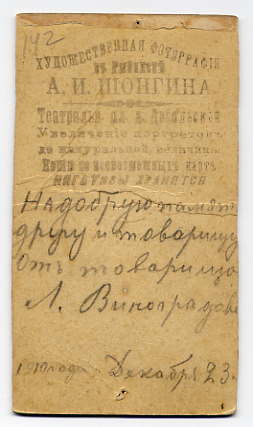 142
ХУДОЖЕСТВЕННАЯ ФОТОГРАФІЯ
ВЪ РЫБИНСКѢ
А. И. ШОНГИНА
Театральн. пл.
Увеличеніе портретовъ
до натуральной величины
Копіи со всевозможныхъ карт.
НЕГАТИВЫ ХРАНЯТСЯ
На добрую память
другу и товарищу
Отъ товарища
Л. Виноградова
1910 года Декабря 23